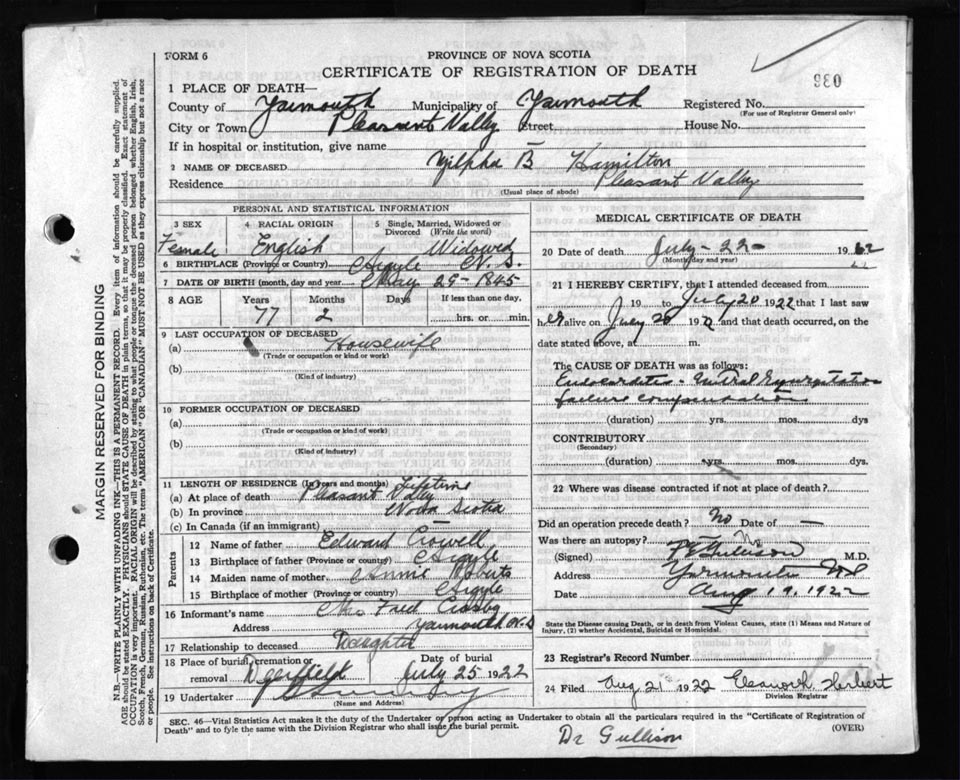 FORM 6
PROVINCE OF NOVA SCOTIA
CERTIFICATE OF REGISTRATION OF DEATH
980
1 PLACE OF DEATH—
County of Yarmouth Municipality of Yarmouth Registered No.
(For use of Registrar General only)
City or Town Pleasant Valley Street House No.
If in hospital or institution, give name
2 NAME OF DECEASED Zilpha B Hamilton
Residence Pleasant Valley
(Usual place of abode)
PERSONAL AND STATISTICAL INFORMATION
3 SEX 4 RACIAL ORIGIN 5 Single, Married, Widowed or Divorced (Write the word)
Female English Widowed
6 BIRTHPLACE (Province or Country) Argyle N. S.
7 DATE OF BIRTH (month, day and year) May 29-1845
8 AGE Years Months Days If less than one day,
77 2 hrs. or min.
9 LAST OCCUPATION OF DECEASED
(a) Housewife
(Trade or occupation or kind or work)
(b)
(Kind of industry)
10 FORMER OCCUPATION OF DECEASED
(a)
(Trade or occupation or kind or work)
(b)
(Kind of industry)
11 LENGTH OF RESIDENCE (In years and months) Lifetime
(a) At place of death Pleasant Valley
(b) In province Nova Scotia
(c) In Canada (if an immigrant)
Parents
12 Name of father Edward Crowell
13 Birthplace of father (Province or country) Argyle
14 Maiden name of mother Annie Roberts
15 Birthplace of mother (Province or country) Argyle
16 Informant's name Mrs Fred Crosby
Address Yarmouth N.S
17 Relationship to deceased Daughter
18 Place of burial, cremation or removal Deerfield Date of burial July 25 1922
19 Undertaker
(Name and Address)
MEDICAL CERTIFICATE OF DEATH
20 DATE OF DEATH July-22- 19
(Month, day and year)
21 I HEREBY CERTIFY, that I attended deceased from
19 to July 20 1922 that I last saw
her alive on July 20 19 and that death occurred, on the
date stated above, at m.
The CAUSE OF DEATH was as follows:
Endocarditis - Mitral Regurgitation
failure compensation
(duration) yrs. mos. dys
CONTRIBUTORY
(Secondary)
(duration) yrs. mos. dys.
22 Where was disease contracted if not at place of death?
Did an operation precede death? No Date of —
Was there an autopsy? No
(Signed) Gullison M.D.
Address Yarmouth NS
Date Aug 19, 1922
State the Disease causing Death, or in death from Violent Causes, state (1) Means and Nature of
Injury, (2) whether Accidental, Suicidal or Homicidal.
23 Registrar's Record Number
24 Filed Aug 21 1922 Eleanor H. Herbert
Division Registrar
SEC. 46—Vital Statistics Act makes it the duty of the Undertaker or person acting as Undertaker to obtain all the particulars required in the "Certificate of Registration of
Death" and to fyle the same with the Division Registrar who shall issue the burial permit.
(OVER)
Dr Gullison
MARGIN RESERVED FOR BINDING
N.B.—WRITE PLAINLY WITH UNFADING INK—THIS IS A PERMANENT RECORD. Every item of information should be carefully supplied.
AGE should be stated EXACTLY. PHYSICIANS should STATE CAUSE OF DEATH in plain terms, so that it may be properly classified. Exact statement of
OCCUPATION is very important. RACIAL ORIGIN will be described by stating to what people or tongue the deceased person belonged whether English, Irish,
Scotch, French, German, Russian, Ruthenian, etc. The terms "AMERICAN" OR "CANADIAN" MUST NOT BE USED as they express citizenship but not a race
or people. See instructions on back of Certificate.